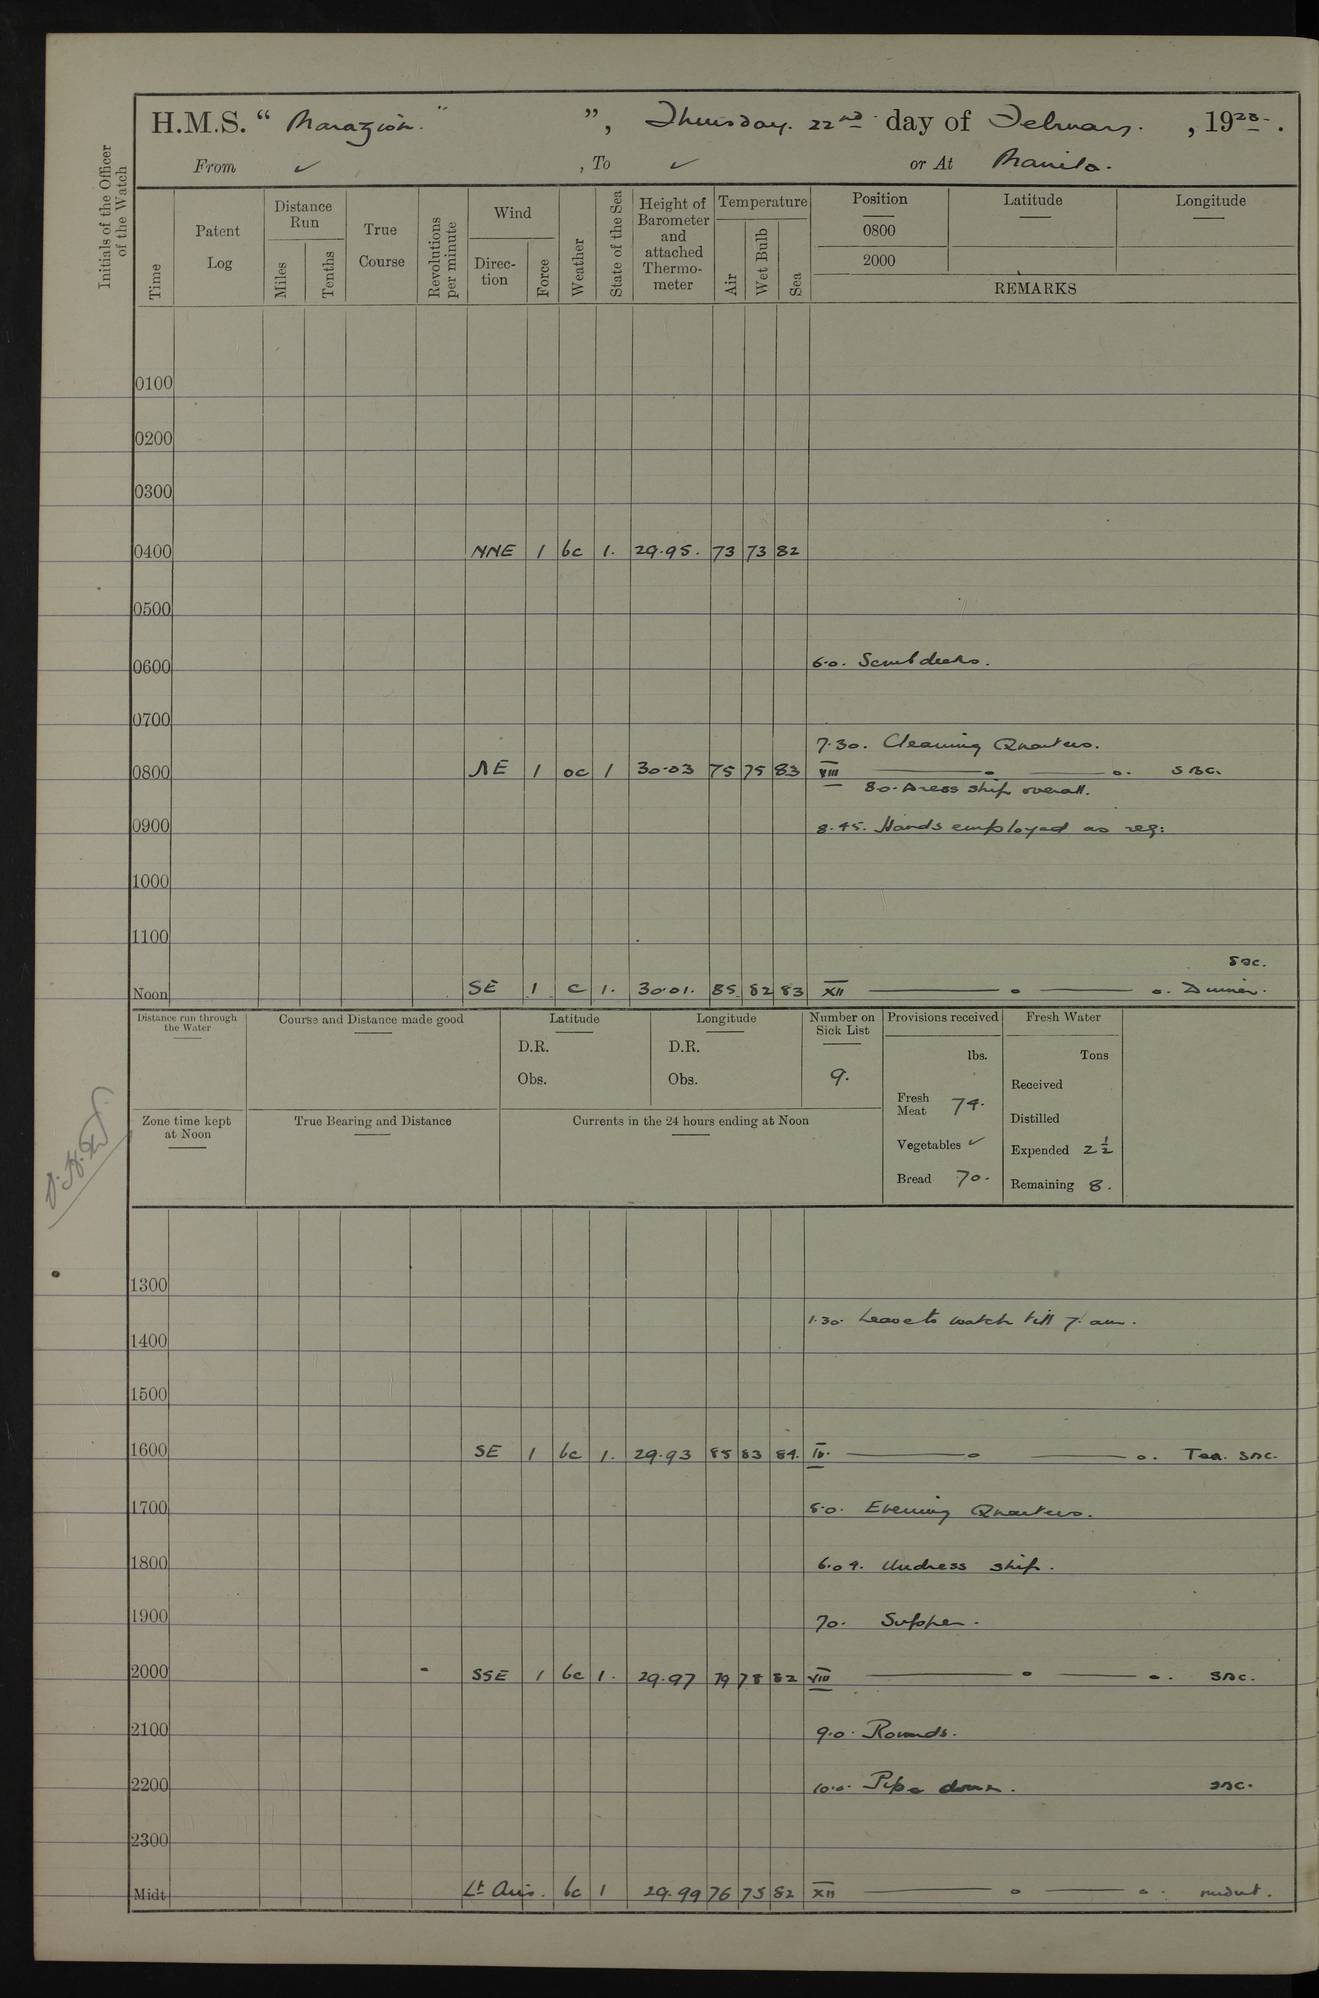 H.M.S. " Marazion. " ", Thursday. 22nd day of February. , 1923.
From ✓ , To ✓ or At Manila.
Initials of the Officer of the Watch
Time Patent Log Distance Run Miles Tenths True Course Revolutions per minute Wind Direction Force Weather State of the Sea Height of Barometer and attached Thermometer Temperature Air Wet Bulb Sea Position 0800 2000 Latitude Longitude
REMARKS
0100
0200
0300
0400 NNE 1 bc 1. 29.95. 73 73 82
0500
0600 6.0. Scrub decks.
0700
7.30. Cleaning Quarters.
0800 NE 1 oc 1 30.03 75 75 83 VIII ——o ——o. SBC.
8.0. Dress ship overall.
0900 8.45. Hands employed as req:
1000
1100
SBC.
Noon SE 1 c 1. 30.01. 85 82 83 XII ——o ——o. Dinner.
Distance run through the Water Course and Distance made good Latitude Longitude Number on Sick List Provisions received Fresh Water
D.R. D.R. lbs. Tons
Obs. Obs. 9. Received
Fresh Meat 74. Distilled
Zone time kept at Noon True Bearing and Distance Currents in the 24 hours ending at Noon
Vegetables ✓ Expended 2 1/2
Bread 70. Remaining 8.
1300
1.30. Leave to watch till 7. am.
1400
1500
1600 SE 1 bc 1. 29.93 85 83 84. IV. ——o ——o. Tea. SBC.
1700 5.0. Evening Quarters.
1800 6.04. Undress ship.
1900 7.0. Supper.
2000 SSE 1 bc 1. 29.97 79 78 82 VIII ——o ——o. SBC.
2100 9.0. Rounds.
2200 10.0. Pipe down. SBC.
2300
Midt Lt Airs. bc 1 29.99 76 75 82 XII ——o ——o. midnt.